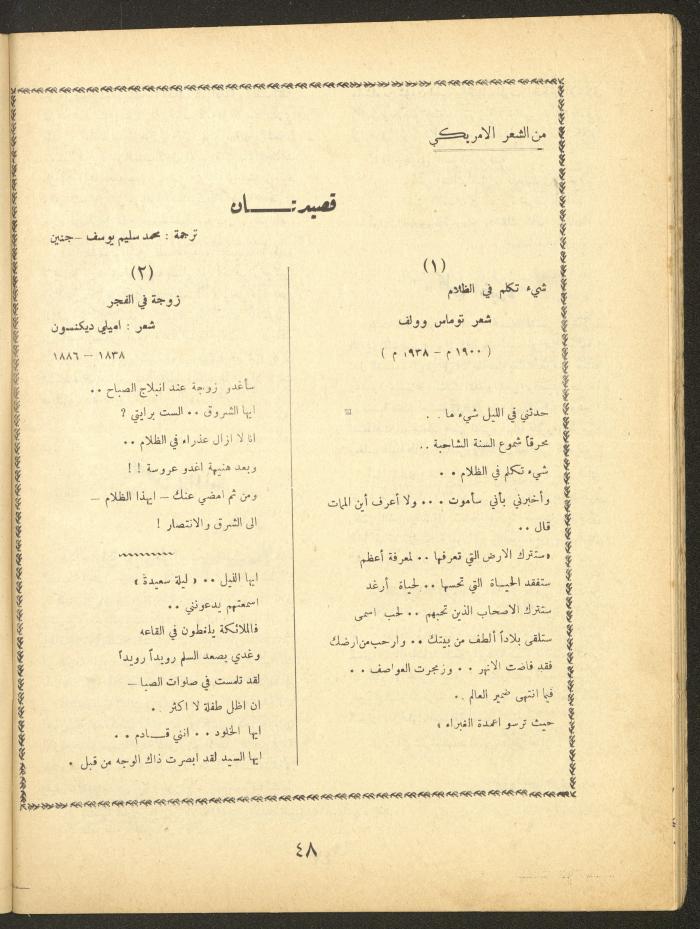 من الشعر الامريكي
قصيدتـــــان
ترجمة : محمد سليم يوسف – جنين
(١)
شيء تكلم في الظلام
شعر توماس وولف
( ١٩٠٠ م – ٩٣٨١ م )
حدثني في الليل شيء ما . .
محرقاً شموع السنة الشاحبة . .
شيء تكلم في الظلام . .
وأخبرني بأني سأموت . . . ولا أعرف أين المات
قال . .
«ستترك الارض التي تعرفها . . لمعرفة أعظم
ستفقد الحياة التي تحسها . . لحياة أرغد
ستترك الاصحاب الذين تحبهم . . لحب اسمى
ستلقى بلاداً ألطف من بيتك . . وارحب من ارضك
فقد فاضت الانهر . . وزمجرت العواصف . .
فيما انتهى ضمير العالم . .
حيث ترسو اعمدة الغبراء »
(٢)
زوجة في الفجر
شعر : اميلي ديكنسون
١٨٣٨ – ١٨٨٦
سأغدو زوجة عند انبلاج الصباح . .
ايها الشروق . . الست برايتي ?
انا لا ازال عذراء في الظلام . .
وبعد هنيهة اغدو عروسة ! !
ومن ثم امضي عنك – ايهذا الظلام –
الى الشرق والانتصار !
ايها الليل . . « ليلة سعيدة »
اسمعتهم يدعونني . .
فالملائكة يلغطون في القاعه
وغدي يصعد السلم رويداً رويداً
لقد تلمست في صلوات الصبا –
ان اظل طفلة لا اكثر .
ايها الخلود . . انني قــادم . .
ايها السيد لقد ابصرت ذاك الوجه من قبل .
٤٨